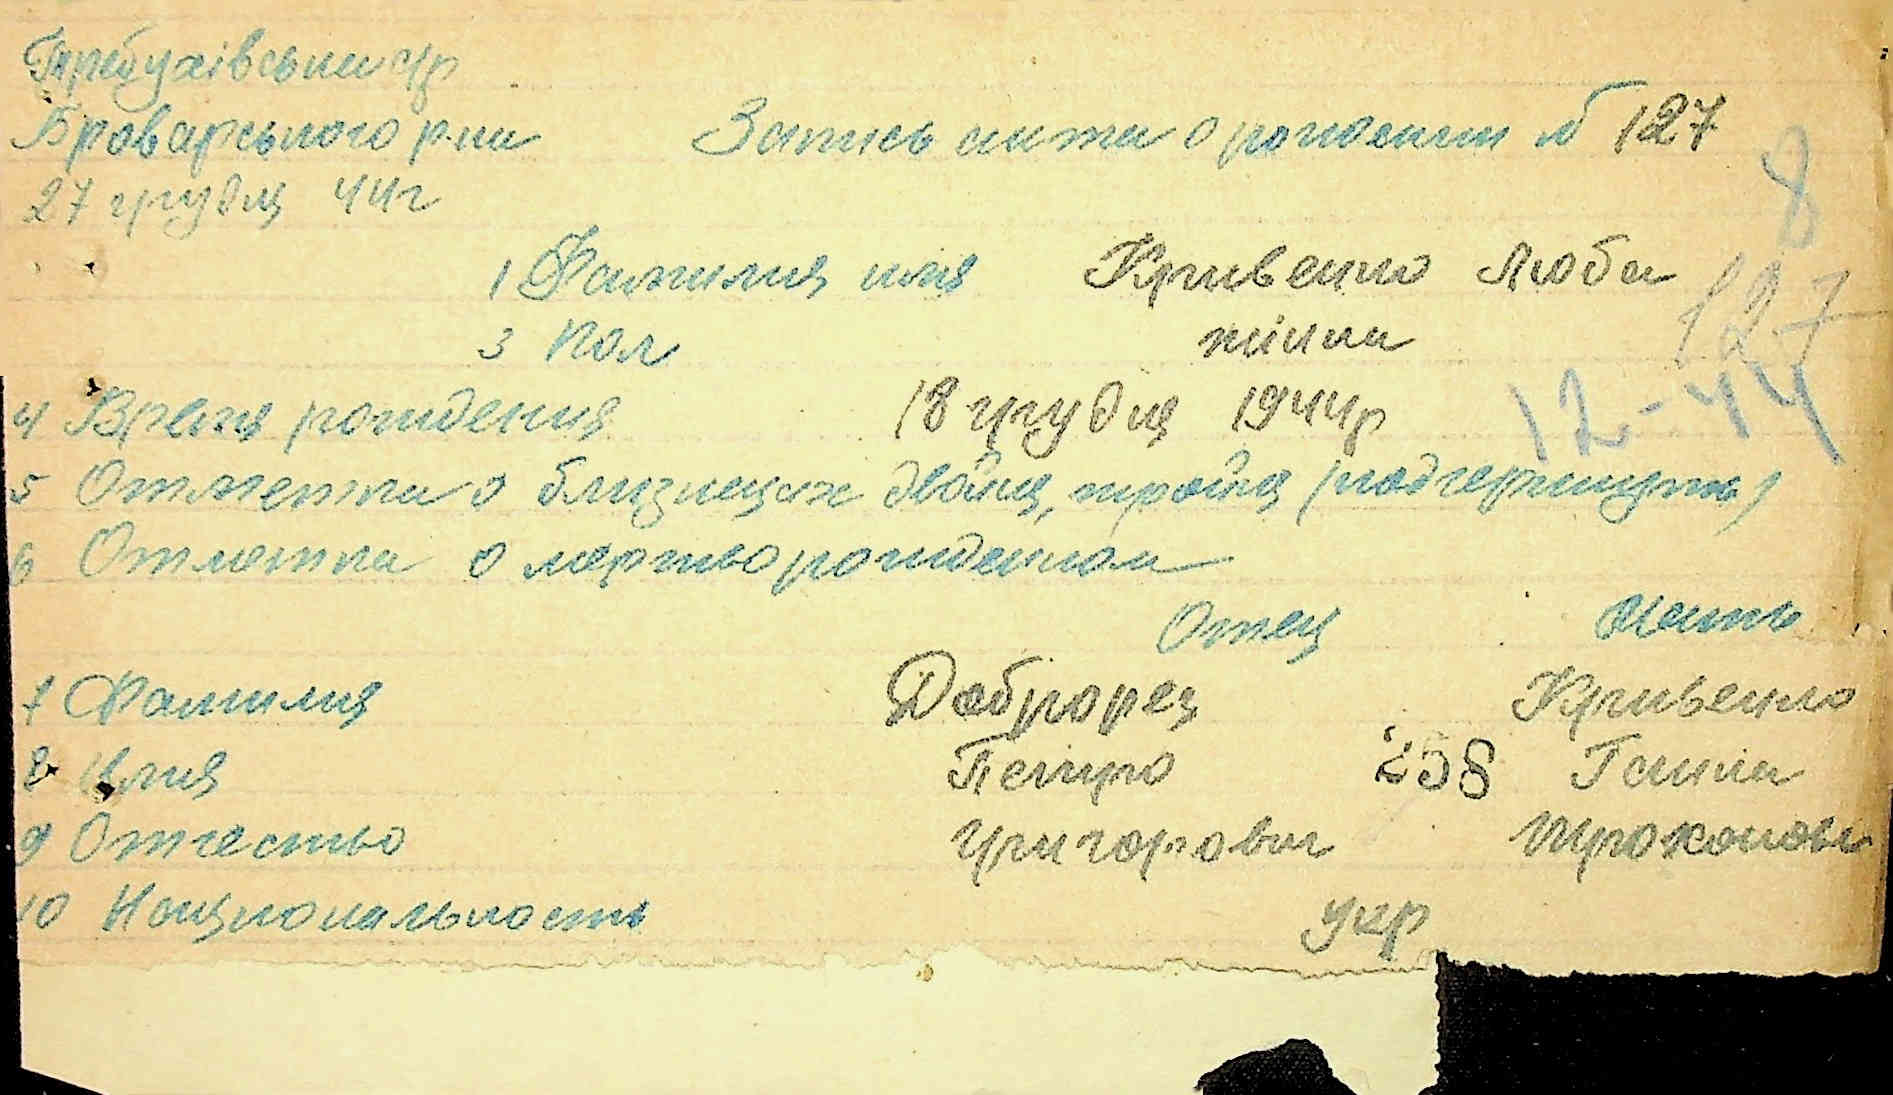 Требухівська с/р
Броварського р-на
27 грудня 44г
Запись акта о рождении № 127
8
127
12-44
1 Фамилия имя Кривенко Люба
3 Пол жінка
4 Время рождения 18 грудня 1944р
5 Отметка о близнецах двойня, тройня (подчеркнуть)
6 Отметка о мертворожденном
Отец Мать
7 Фамилия Доброрец Кривенко
8 Имя Петро 258 Ганна
9 Отчество Григорович
10 Национальность укр